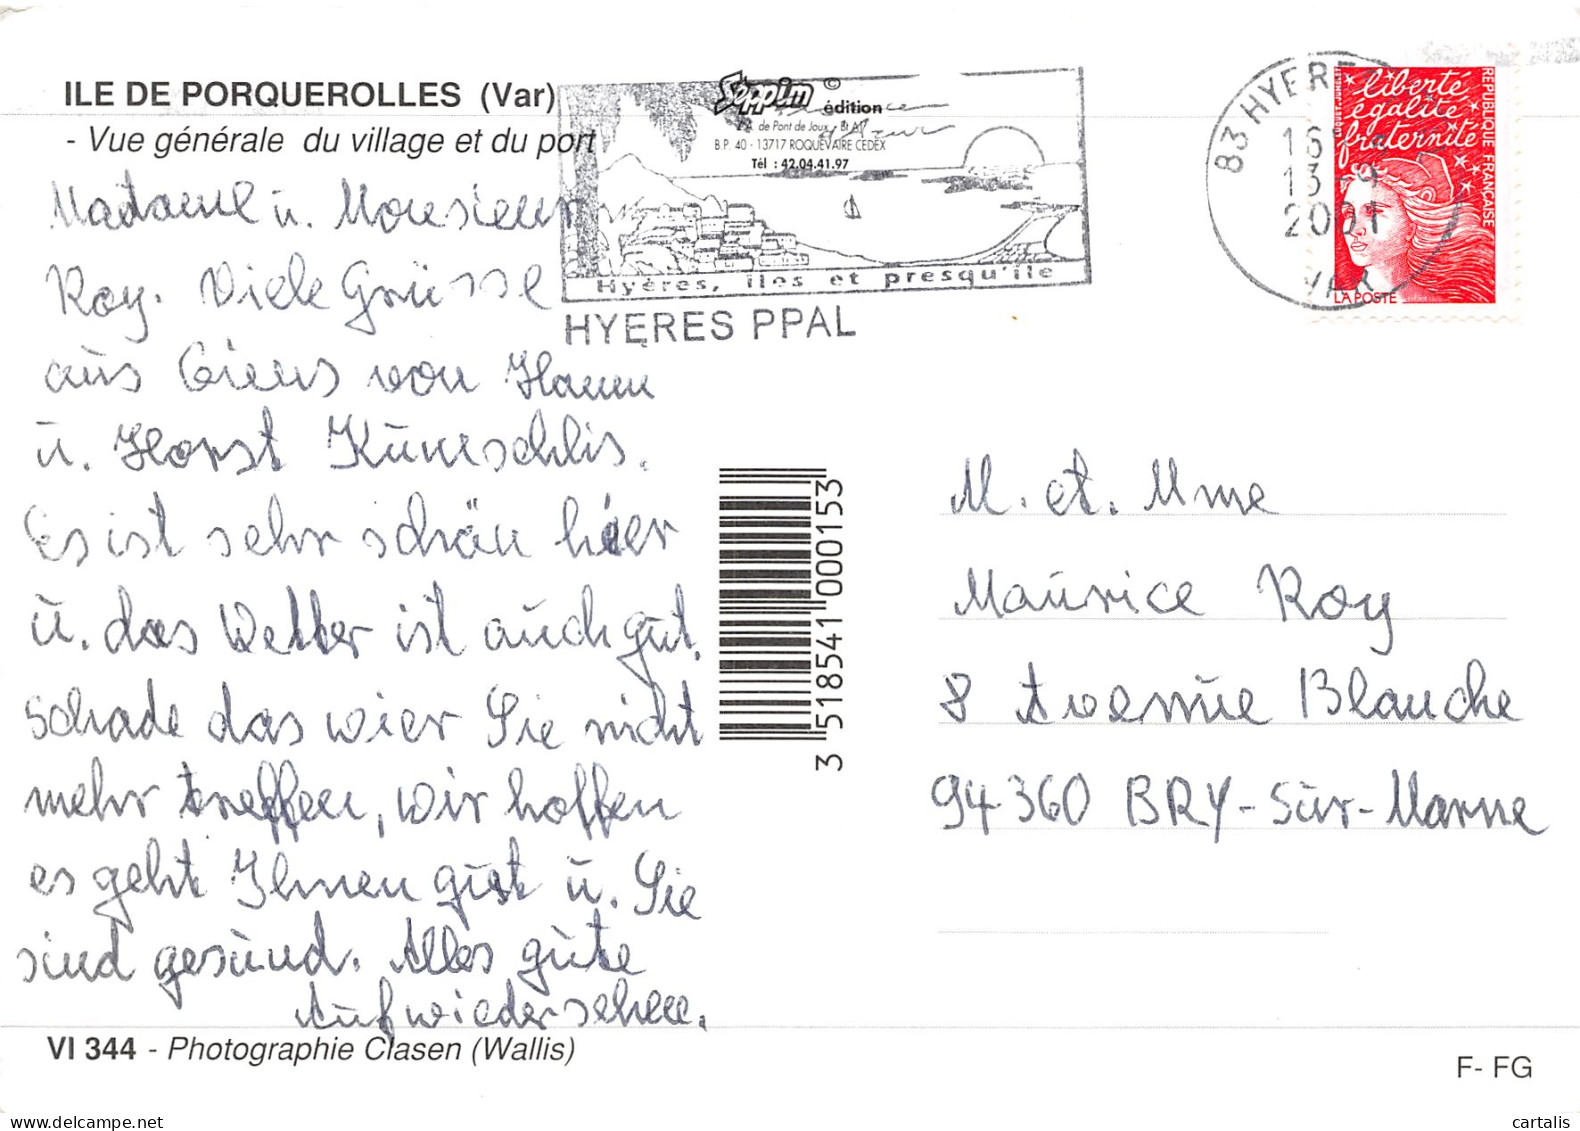 ILE DE PORQUEROLLES (Var)
- Vue générale du village et du port
Madame u. Monsieur
Roy. Viele Grüsse
aus Giens von Hann
u. Horst
Es ist sehr schön hier
u. das Wetter ist auch gut.
Schade das wier Sie nicht
mehr treffen, wir hoffen
es geht Ihnen gut u. Sie
sind gesund. Alles gute
Auf wiedersehen.
VI 344 - Photographie Clasen (Wallis)
Séppim ©
édition
de Pont de Joux
B.P. 40 - 13717 ROQUEVAIRE CEDEX
Tél : 42.04.41.97
Hyères, iles et presqu'ile
HYERES PPAL
3 518541 000153
83 HYERES
16
13-9
2001
VAR
liberté
égalité
fraternité
RÉPUBLIQUE FRANÇAISE
LA POSTE
M. et. Mme
Maurice Roy
8 Avenue Blanche
94360 BRY-Sur-Marne
F- FG
cartalis
www.delcampe.net